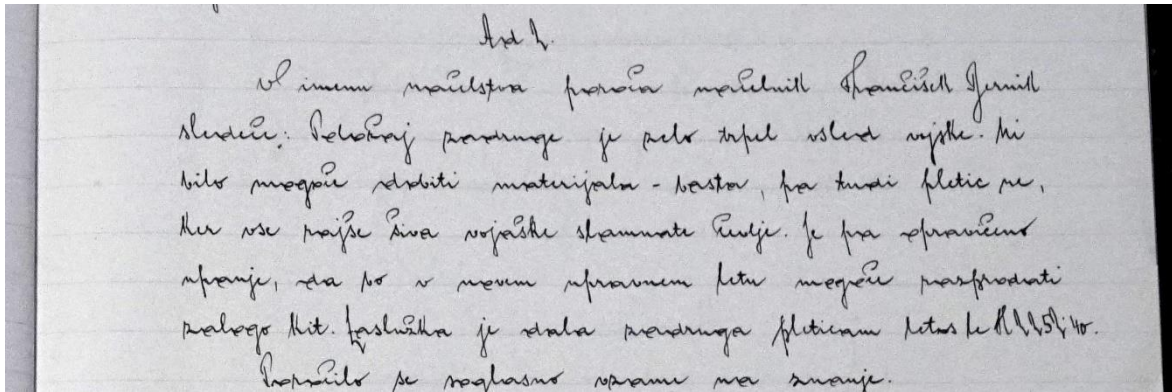 Ad 2.
V imenu načelstva poroča načelnik Frančišek Jernik
sledeče: Položaj zadruge je zelo trpel vsled vojske. Ni
bilo mogoče dobiti materijala - basta, pa tudi pletic ne,
ker vse rajše šiva vojaške slamnate čevlje. Je pa opravičeno
upanje, da bo v novem upravnem letu mogoče razprodati
zalogo kit. Zaslužka je dala zadruga pleticam letos le
Poročilo se soglasno vzame na znanje.